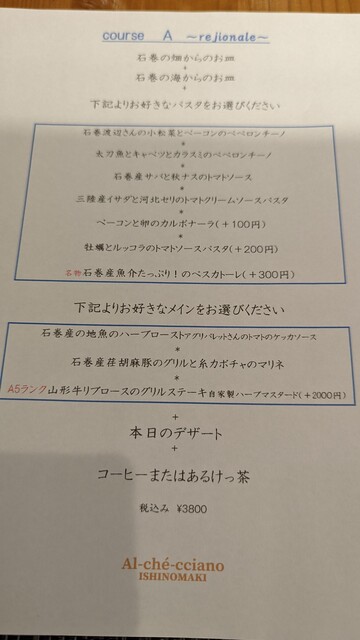 course A ～rejionale～
石巻の畑からのお皿
+
石巻の海からのお皿
下記よりお好きなパスタをお選びください
石巻渡辺さんの小松菜とベーコンのペペロンチーノ
*
太刀魚とキャベツとカラスミのペペロンチーノ
*
石巻産サバと秋ナスのトマトソース
*
三陸産イサダと河北セリのトマトクリームソースパスタ
*
ベーコンと卵のカルボナーラ(+100円)
*
牡蠣とルッコラのトマトソースパスタ(+200円)
*
名物石巻産魚介たっぷり!のペスカトーレ(+300円)
下記よりお好きなメインをお選びください
石巻産の地魚のハーブローストアグリパレットさんのトマトのケッカソース
*
石巻産荏胡麻豚のグリルと糸カボチャのマリネ
*
A5ランク山形牛リブロースのグリルステーキ自家製ハーブマスタード(+2000円)
+
本日のデザート
+
コーヒーまたはあるけっ茶
税込み ¥3800
Al-ché-cciano
ISHINOMAKI